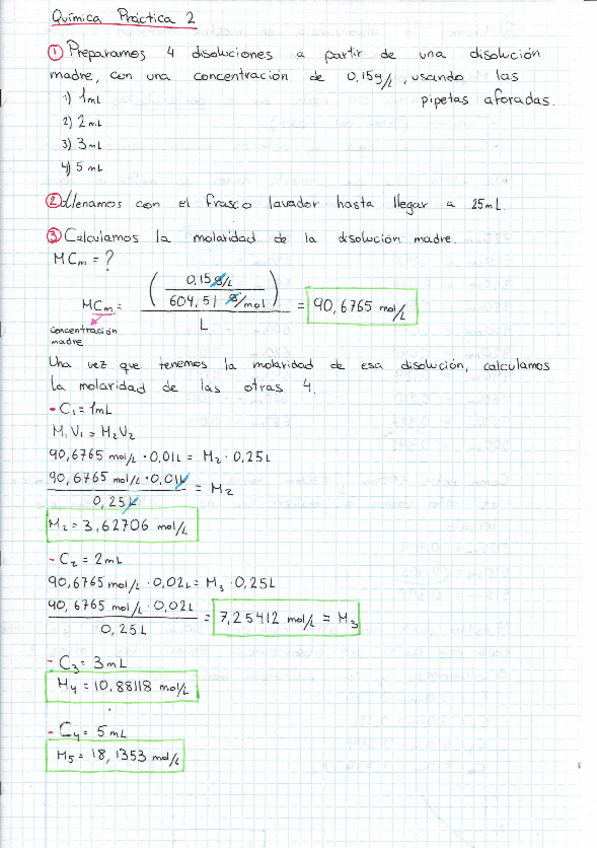 Química Práctica 2
① Preparamos 4 disoluciones a partir de una disolución
madre, con una concentración de 0,15g/L, usando las
pipetas aforadas.
1) 1mL
2) 2mL
3) 3mL
4) 5mL
② Llenamos con el frasco lavador hasta llegar a 25mL.
③ Calculamos la molaridad de la disolución madre.
MCm = ?
MCm = (0,15 g/L / 604,51 g/mol) / L = 90,6765 mol/L
concentración
madre
Una vez que tenemos la molaridad de esa disolución, calculamos
la molaridad de las otras 4.
- C₁ = 1mL
M₁V₁ = M₂V₂
90,6765 mol/L · 0,01L = M₂ · 0,25L
90,6765 mol/L · 0,01L / 0,25L = M₂
M₂ = 3,62706 mol/L
- C₂ = 2mL
90,6765 mol/L · 0,02L = M₃ · 0,25L
90,6765 mol/L · 0,02L / 0,25L = 7,25412 mol/L = M₃
- C₃ = 3mL
M₄ = 10,88118 mol/L
- C₄ = 5mL
M₅ = 18,1353 mol/L